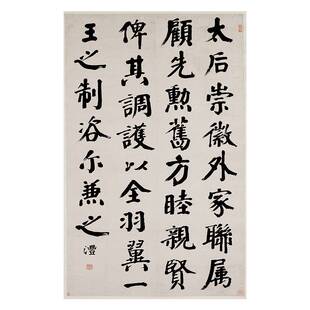 太后崇徽外家聯属
顧先勲舊方睦親賢
俾其調護以全羽翼一
王之制咨尓兼之
澧